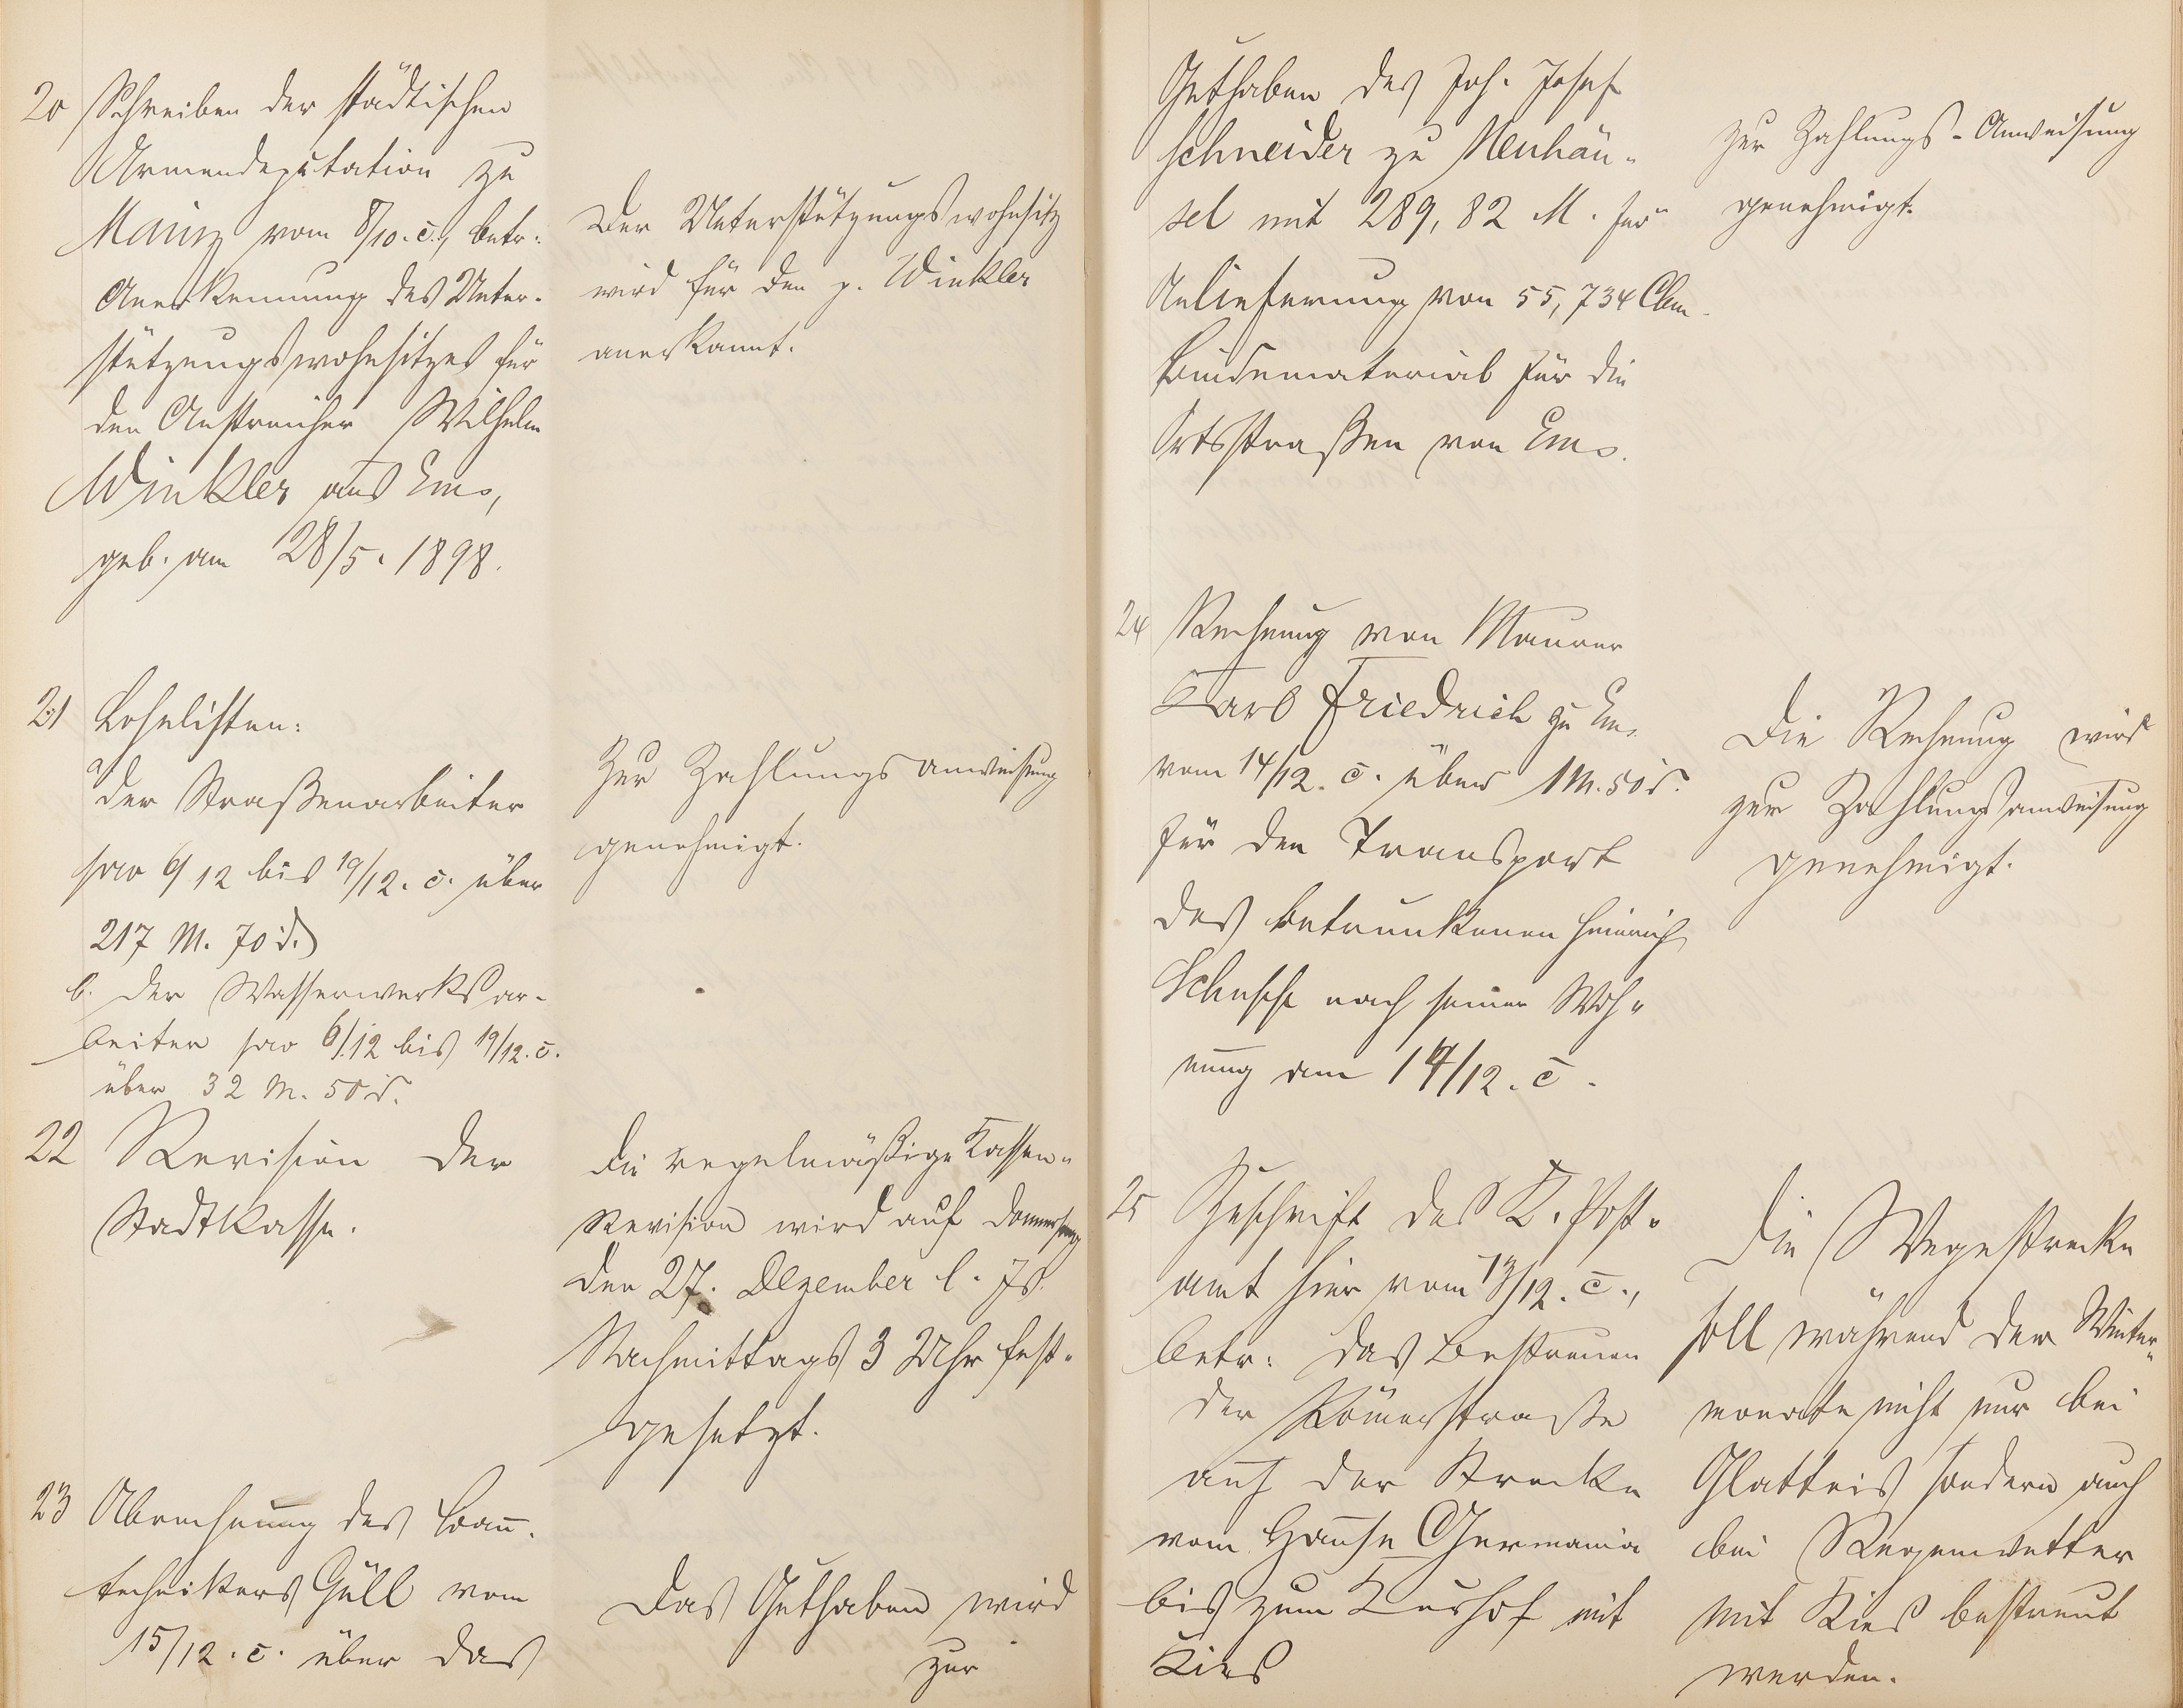 20 Schreiben der städtischen
Armendeputation zu
Mainz vom 8/10. c., betr.
Anerkennung des Unter-
stützungswohnsitzes für
den Anstreicher Wilhelm
Winkler aus Ems,
geb. am 28/5. 1898.
Der Unterstützungswohnsitz
wird für den p. Winkler
anerkannt.
21 Lohnlisten:
a/ der Straßenarbeiter
pro 6/12 bis 19/12. c. über
217 M. 70 d.
b. der Wasserwerksar-
beiter pro 6/12 bis 19/12. c.
über 32 M. 50 d.
Zur Zahlungsanweisung
genehmigt.
22 Revision der
Stadtkasse.
Die regelmäßige Kassen-
Revision wird auf Donnerstag
den 27. Dezember l. Js.
Nachmittags 3 Uhr fest-
gesetzt.
23 Abrechnung des Bau-
technikers Güll vom
15/12. c. über das
Das Guthaben wird
zur
Guthaben des Joh. Josef
Schneider zu Neuhäu-
sel mit 289,82 M. für
Anlieferung von 55,734 Cbm
Bindematerial für die
Ortsstraßen von Ems.
zur Zahlungs-Anweisung
genehmigt.
24 Rechnung von Maurer
Karl Friedrich zu Ems
vom 14/12. c. über 1 M. 50 d.
für den Transport
des betrunkenen Heinrich
nach seiner Woh-
nung am 14/12. c.
Die Rechnung wird
zur Zahlungsanweisung
genehmigt.
25 Zuschrift des K. Post-
amt hier vom /12. c.,
betr. das Bestreuen
der Römerstraße
auf der Strecke
vom Hause Germania
bis zum Kurhof mit
Kies
Die Wegestrecke
soll während der Winter-
monate nicht nur bei
Glatteis sondern auch
bei Regenwetter
mit Kies bestreut
werden.